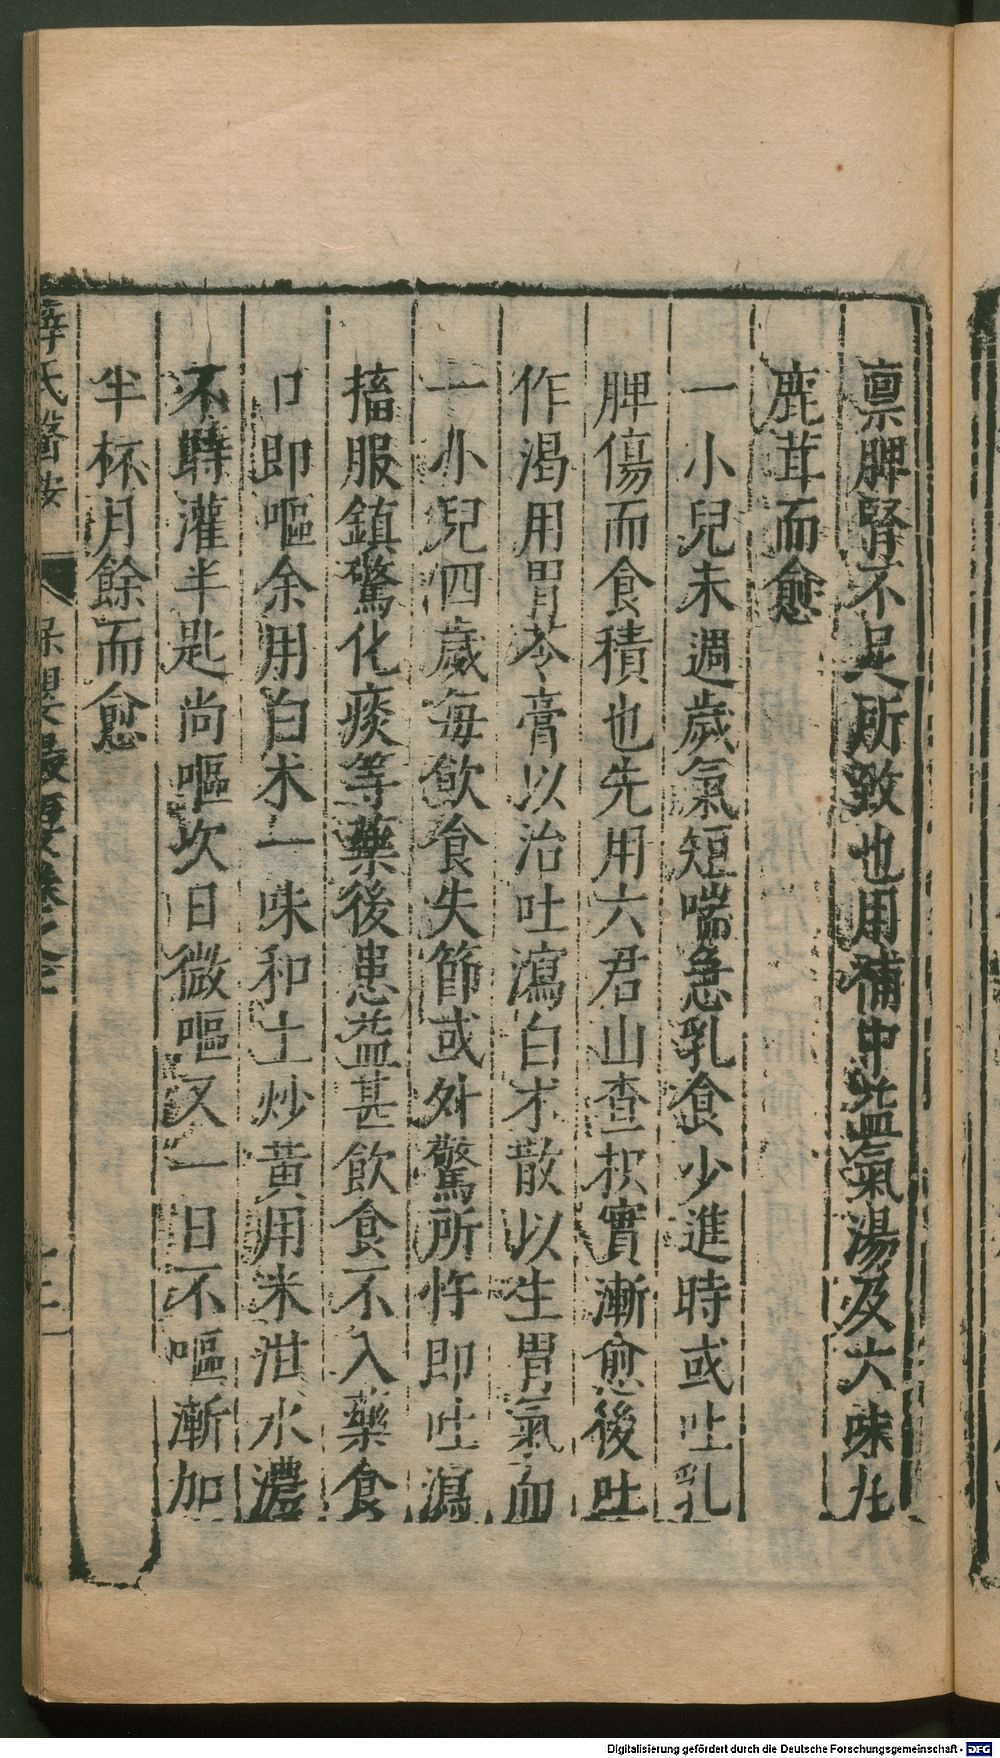 禀脾腎不足所致也用補中益氣湯及六味丸
鹿茸而愈
一小兒未週歲氣短喘急乳食少進時或吐乳
脾傷而食積也先用六君山查枳實漸愈後吐
作渴用胃苓膏以治吐瀉白朮散以生胃氣而
一小兒四歲每飲食失節或外驚所忤即吐瀉
搐服鎮驚化痰等藥後患益甚飲食不入藥食
口即嘔余用白朮一味和土炒黃用米泔水濃
不時灌半匙尚嘔次日微嘔又一日不嘔漸加
半杯月餘而愈
薛氏醫按 保嬰撮要卷之
Digitalisierung gefördert durch die Deutsche Forschungsgemeinschaft - DFG